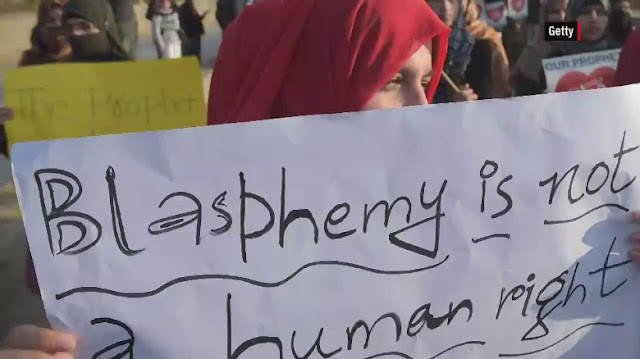 Getty
The Prophet
OUR PROPHE
Blasphemy is not
a human right